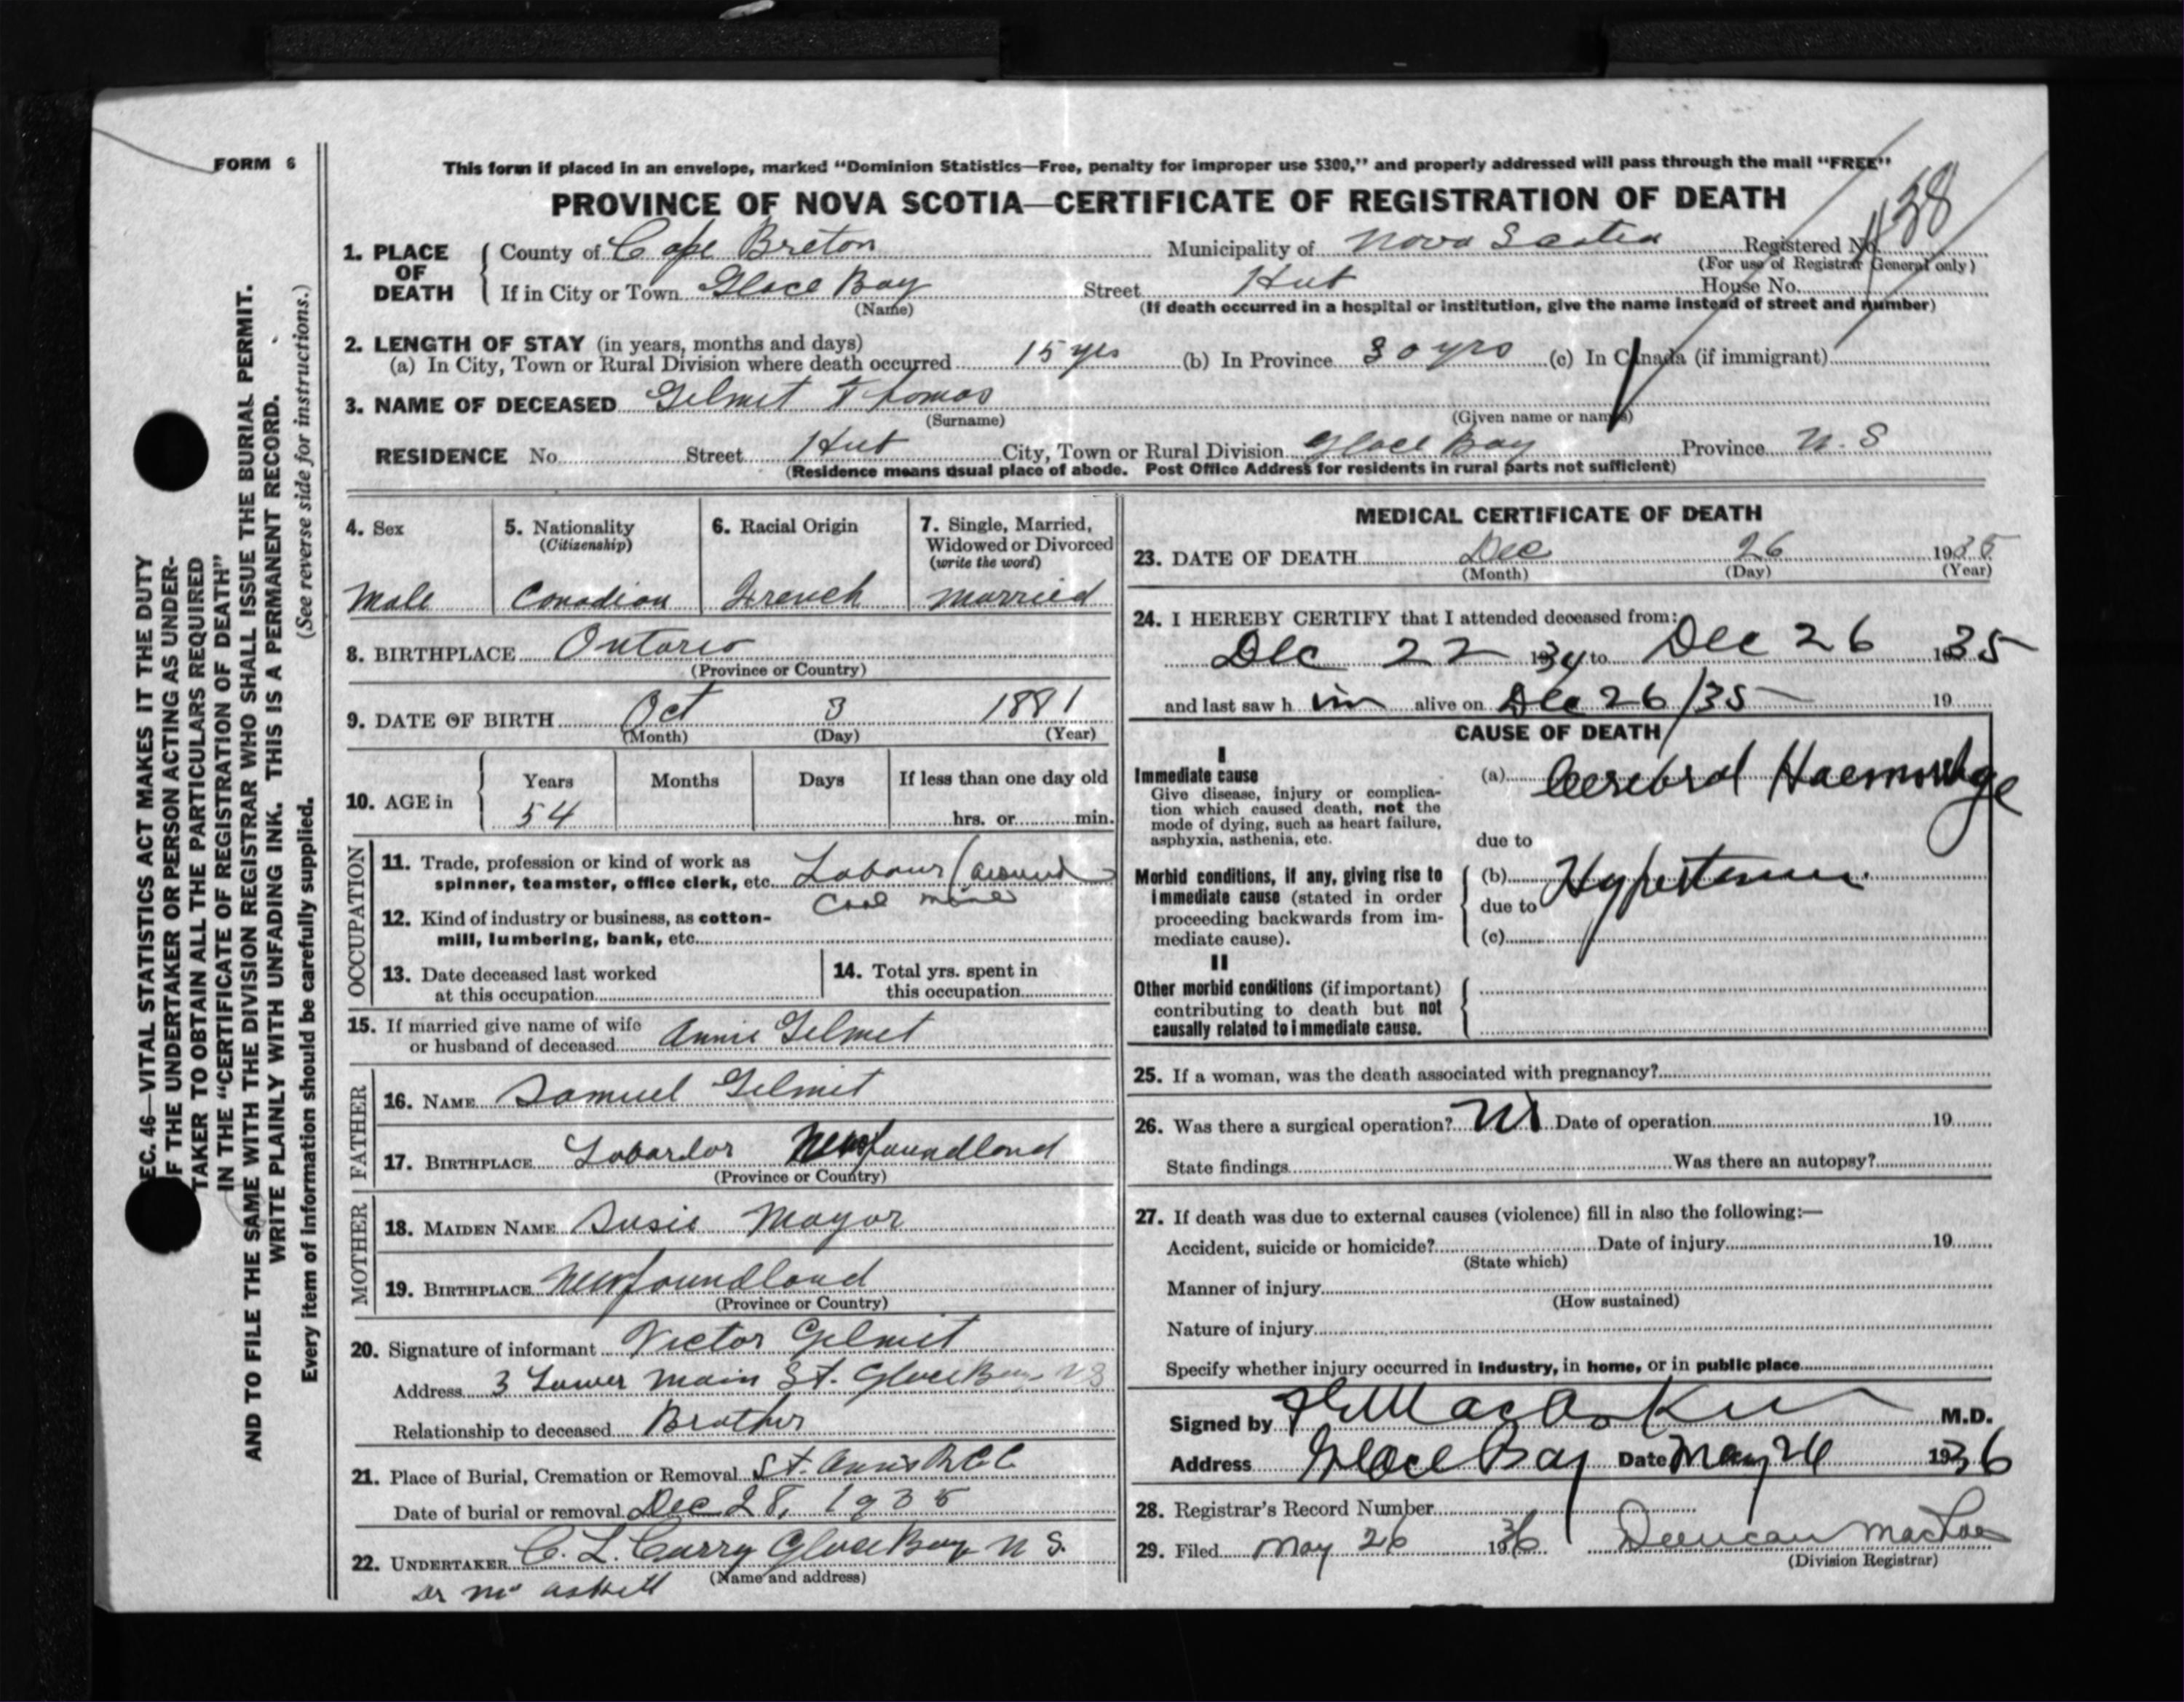 FORM 6
This form if placed in an envelope, marked "Dominion Statistics—Free, penalty for improper use $300," and properly addressed will pass through the mail "FREE"
PROVINCE OF NOVA SCOTIA—CERTIFICATE OF REGISTRATION OF DEATH
38
1. PLACE OF DEATH County of Cape Breton Municipality of Nova Scotia Registered No.
(For use of Registrar General only)
If in City or Town Glace Bay Street Hub House No.
(Name) (If death occurred in a hospital or institution, give the name instead of street and number)
2. LENGTH OF STAY (in years, months and days)
(a) In City, Town or Rural Division where death occurred 15 yrs (b) In Province 30 yrs (c) In Canada (if immigrant)
3. NAME OF DECEASED Gelmet Thomas
(Surname) (Given name or names)
RESIDENCE No. Street Hub City, Town or Rural Division Glace Bay Province N. S
(Residence means usual place of abode. Post Office Address for residents in rural parts not sufficient)
4. Sex
Male
5. Nationality
(Citizenship)
Canadian
6. Racial Origin
French
7. Single, Married,
Widowed or Divorced
(write the word)
Married
8. BIRTHPLACE Ontario
(Province or Country)
9. DATE OF BIRTH Oct 3 1881
(Month) (Day) (Year)
10. AGE in Years Months Days If less than one day old
54 hrs. or min.
OCCUPATION
11. Trade, profession or kind of work as
spinner, teamster, office clerk, etc. Labour (around
Coal mines
12. Kind of industry or business, as cotton-
mill, lumbering, bank, etc.
13. Date deceased last worked
at this occupation
14. Total yrs. spent in
this occupation
15. If married give name of wife
or husband of deceased Annie Gelmet
FATHER
16. NAME Samuel Gelmet
17. BIRTHPLACE Labardor Newfoundland
(Province or Country)
MOTHER
18. MAIDEN NAME Susie Mayor
19. BIRTHPLACE Newfoundland
(Province or Country)
20. Signature of informant Victor Gelmet
Address 3 Lower Main St. Glace Bay NS
Relationship to deceased Brother
21. Place of Burial, Cremation or Removal St. Ann's R.C.C
Date of burial or removal Dec 28, 1935
22. UNDERTAKER C. L. Curry Glace Bay N S.
(Name and address)
Dr Mc Askill
MEDICAL CERTIFICATE OF DEATH
23. DATE OF DEATH Dec 26 1935
(Month) (Day) (Year)
24. I HEREBY CERTIFY that I attended deceased from:
Dec 22 1934 to Dec 26 1935
and last saw h im alive on Dec 26/35 19
CAUSE OF DEATH
I
Immediate cause
Give disease, injury or complica-
tion which caused death, not the
mode of dying, such as heart failure,
asphyxia, asthenia, etc.
(a) Cerebral Haemorrhage
due to
Morbid conditions, if any, giving rise to
immediate cause (stated in order
proceeding backwards from im-
mediate cause).
(b) Hypertension
due to
(c)
II
Other morbid conditions (if important)
contributing to death but not
causally related to immediate cause.
25. If a woman, was the death associated with pregnancy?
26. Was there a surgical operation? No Date of operation 19
State findings Was there an autopsy?
27. If death was due to external causes (violence) fill in also the following:—
Accident, suicide or homicide? Date of injury 19
(State which)
Manner of injury
(How sustained)
Nature of injury
Specify whether injury occurred in industry, in home, or in public place
Signed by M.D.
Address Glace Bay Date May 26 1936
28. Registrar's Record Number
29. Filed May 26 1936 Duncan
(Division Registrar)
SEC. 46—VITAL STATISTICS ACT MAKES IT THE DUTY
OF THE UNDERTAKER OR PERSON ACTING AS UNDER-
TAKER TO OBTAIN ALL THE PARTICULARS REQUIRED
IN THE "CERTIFICATE OF REGISTRATION OF DEATH"
AND TO FILE THE SAME WITH THE DIVISION REGISTRAR WHO SHALL ISSUE THE BURIAL PERMIT.
WRITE PLAINLY WITH UNFADING INK. THIS IS A PERMANENT RECORD.
Every item of information should be carefully supplied. (See reverse side for instructions.)